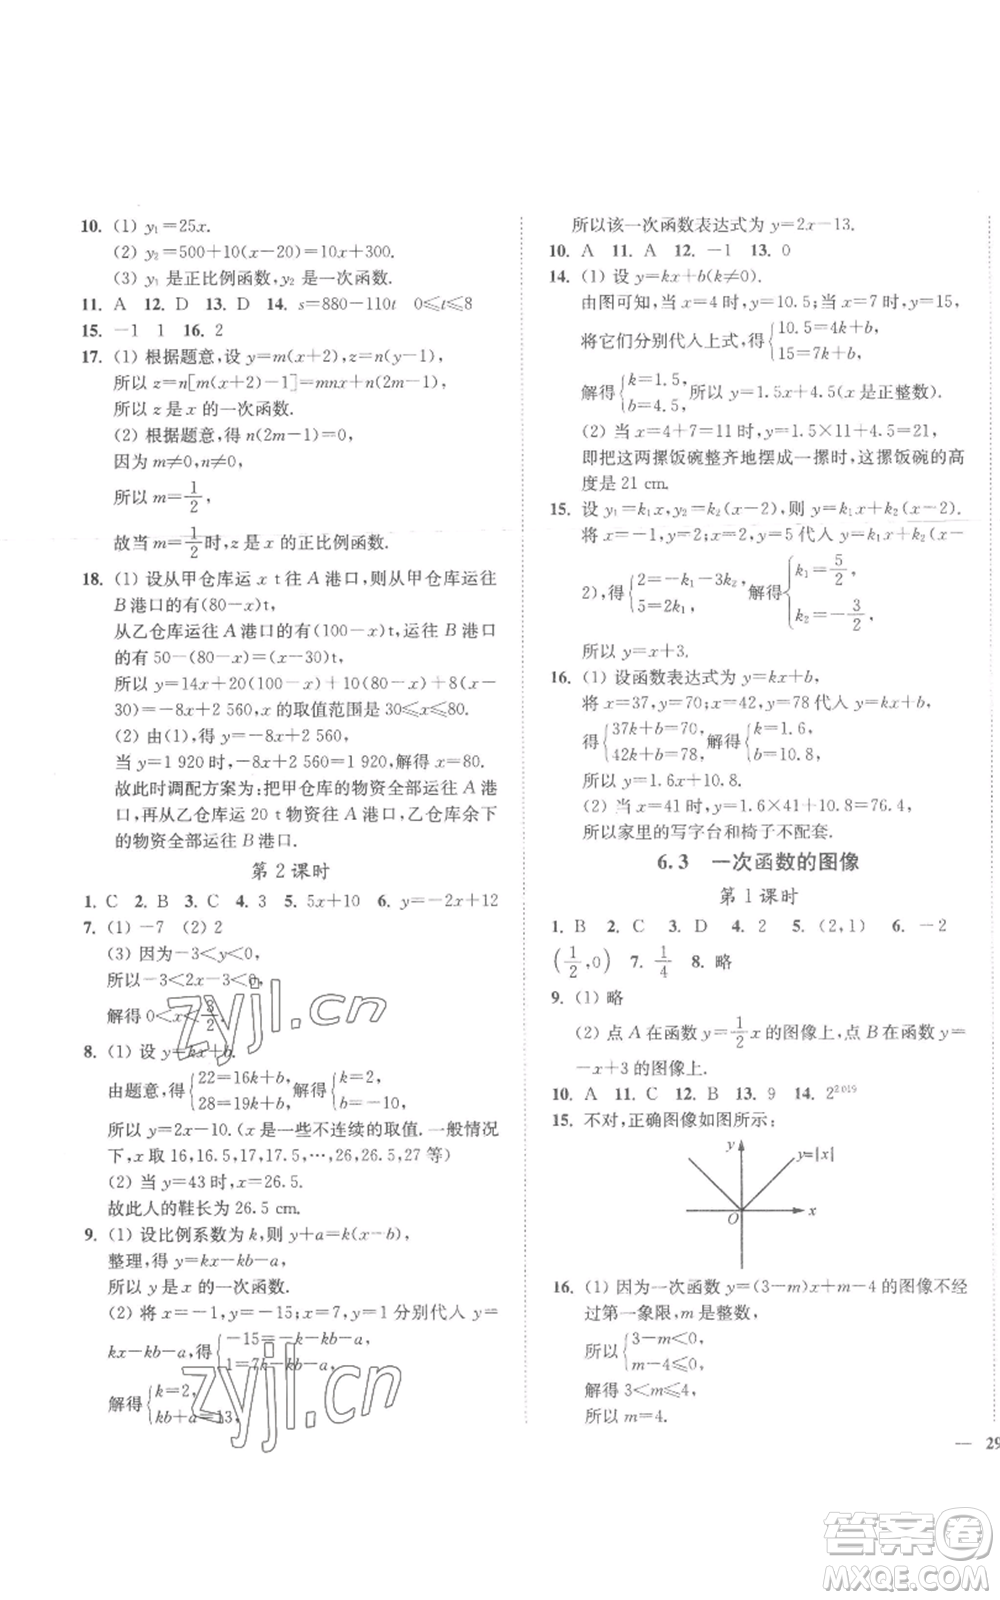 10. (1) y₁=25x.
(2) y₂=500+10(x-20)=10x+300.
(3) y₁ 是正比例函数,y₂ 是一次函数.
11. A 12. D 13. D 14. s=880-110t 0≤t≤8
15. -1 1 16. 2
17. (1) 根据题意,设 y=m(x+2),z=n(y-1),
所以 z=n[m(x+2)-1]=mnx+n(2m-1),
所以 z 是 x 的一次函数.
(2) 根据题意,得 n(2m-1)=0,
因为 m≠0,n≠0,
所以 m=1/2,
故当 m=1/2 时,z 是 x 的正比例函数.
18. (1) 设从甲仓库运 x t 往 A 港口,则从甲仓库运往
B 港口的有(80-x)t,
从乙仓库运往 A 港口的有(100-x)t,运往 B 港口
的有 50-(80-x)=(x-30)t,
所以 y=14x+20(100-x)+10(80-x)+8(x-
30)=-8x+2 560,x 的取值范围是 30≤x≤80.
(2) 由(1),得 y=-8x+2 560,
当 y=1 920 时,-8x+2 560=1 920,解得 x=80.
故此时调配方案为:把甲仓库的物资全部运往 A 港
口,再从乙仓库运 20 t 物资运往 A 港口,乙仓库余下
的物资全部运往 B 港口.
第 2 课时
1. C 2. B 3. C 4. 3 5. 5x+10 6. y=-2x+12
7. (1) -7 (2) 2
(3) 因为-3<y<0,
所以-3<2x-3<0,
解得 0<x<3/2.
8. (1) 设 y=kx+b.
由题意,得{22=16k+b, 28=19k+b,解得{k=2, b=-10,
所以 y=2x-10.(x 是一些不连续的取值. 一般情况
下,x 取 16,16.5,17,17.5,…,26,26.5,27 等)
(2) 当 y=43 时,x=26.5.
故此人的鞋长为 26.5 cm.
9. (1) 设比例系数为 k,则 y+a=k(x-b),
整理,得 y=kx-kb-a,
所以 y 是 x 的一次函数.
(2) 将 x=-1,y=-15;x=7,y=1 分别代入 y=
kx-kb-a,得{-15=-k-kb-a, 1=7k-kb-a,
解得{k=2, kb+a=13,
所以该一次函数表达式为 y=2x-13.
10. A 11. A 12. -1 13. 0
14. (1) 设 y=kx+b(k≠0).
由图可知,当 x=4 时,y=10.5;当 x=7 时,y=15,
将它们分别代入上式,得{10.5=4k+b, 15=7k+b,
解得{k=1.5, b=4.5,所以 y=1.5x+4.5(x 是正整数).
(2) 当 x=4+7=11 时,y=1.5×11+4.5=21,
即把这两摞饭碗整齐地摆成一摞时,这摞饭碗的高
度是 21 cm.
15. 设 y₁=k₁x,y₂=k₂(x-2),则 y=k₁x+k₂(x-2).
将 x=-1,y=2;x=2,y=5 代入 y=k₁x+k₂(x-
2),得{2=-k₁-3k₂, 5=2k₁,解得{k₁=5/2, k₂=-3/2,
所以 y=x+3.
16. (1) 设函数表达式为 y=kx+b,
将 x=37,y=70;x=42,y=78 代入 y=kx+b,
得{37k+b=70, 42k+b=78,解得{k=1.6, b=10.8,
所以 y=1.6x+10.8.
(2) 当 x=41 时,y=1.6×41+10.8=76.4,
所以家里的写字台和椅子不配套.
6.3 一次函数的图像
第 1 课时
1. B 2. C 3. D 4. 2 5. (2,1) 6. -2
(1/2,0) 7. 1/4 8. 略
9. (1) 略
(2) 点 A 在函数 y=1/2x 的图像上,点 B 在函数 y=
-x+3 的图像上.
10. A 11. C 12. B 13. 9 14. 2²⁰¹⁹
15. 不对,正确图像如图所示:
y
y=|x|
O
x
16. (1) 因为一次函数 y=(3-m)x+m-4 的图像不经
过第一象限,m 是整数,
所以{3-m<0, m-4≤0,
解得 3<m≤4,
所以 m=4.
— 29
zyjl.cn
zyjl.cn
答案圈
MXQE.COM